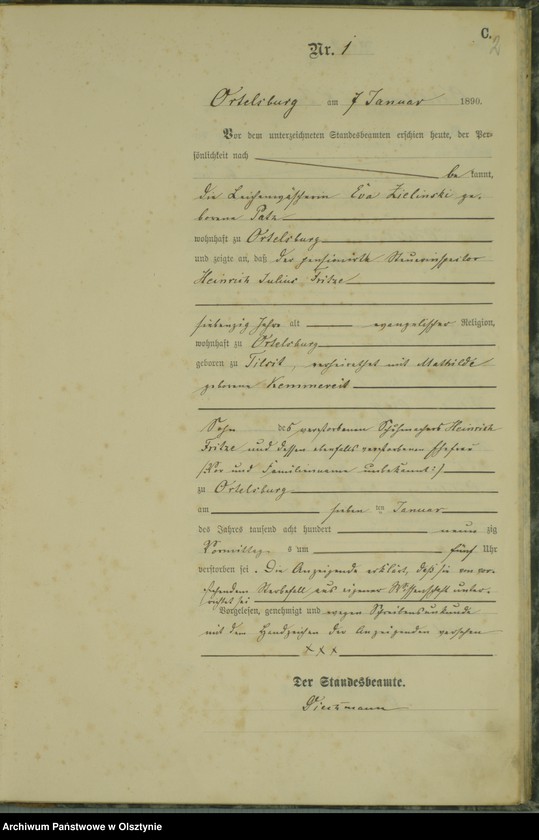 C.
2
Nr. 1
Ortelsburg am 7 Januar 1890.
Vor dem unterzeichneten Standesbeamten erschien heute, der Per-
sönlichkeit nach
be kannt,
die Leichenwäscherin Eva Zielinski ge-
borene Patz
wohnhaft zu Ortelsburg
und zeigte an, daß der pensionirte Steuerinspector
Heinrich Julius Fritze
siebenzig Jahre alt evangelischer Religion,
wohnhaft zu Ortelsburg
geboren zu Tilsit, verheirathet mit Mathilde
geborene Kemmereit
Sohn des verstorbenen Schuhmachers Heinrich
Fritze und dessen ebenfalls verstorbenen Ehefrau
(Vor und Familienname unbekannt!)
zu Ortelsburg
am sieben ten Januar
des Jahres tausend acht hundert neun zig
Vormittags um fünf Uhr
verstorben sei. Die Anzeigende erklärt, daß sie von vor-
stehendem Sterbefall aus eigener Wissenschaft unter-
richtet sei
Vorgelesen, genehmigt und wegen Schreibensunkunde
mit dem Handzeichen der Anzeigenden versehen
+++
Der Standesbeamte.
Archiwum Państwowe w Olsztynie